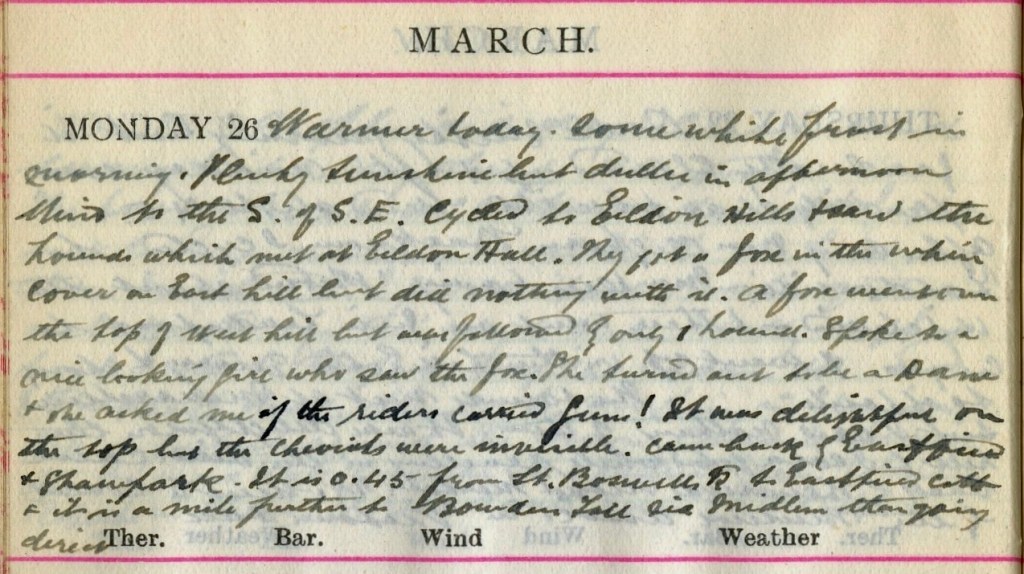 MARCH.
MONDAY 26 Warmer today. Some white frost in
morning. Plucky sunshine but duller in afternoon
Wind to the S. of S.E. Cycled to Eildon Hills & saw the
hounds which met at Eildon Hall. They got a fox in the whin
cover on East hill but did nothing with it. A fox went over
the top of West hill but was followed by only 1 hound. Spoke to a
nice looking girl who saw the fox. She turned out to be a Dane
& she asked me if the riders carried guns! It was delightful on
the top but the Cheviots were invisible. Came back by Eastfield
& Shawpark. It is 0.45 from St. Boswells to Eastfield cott
& it is a mile further to Bowden Toll via Midlem than going
direct
Ther. Bar. Wind Weather